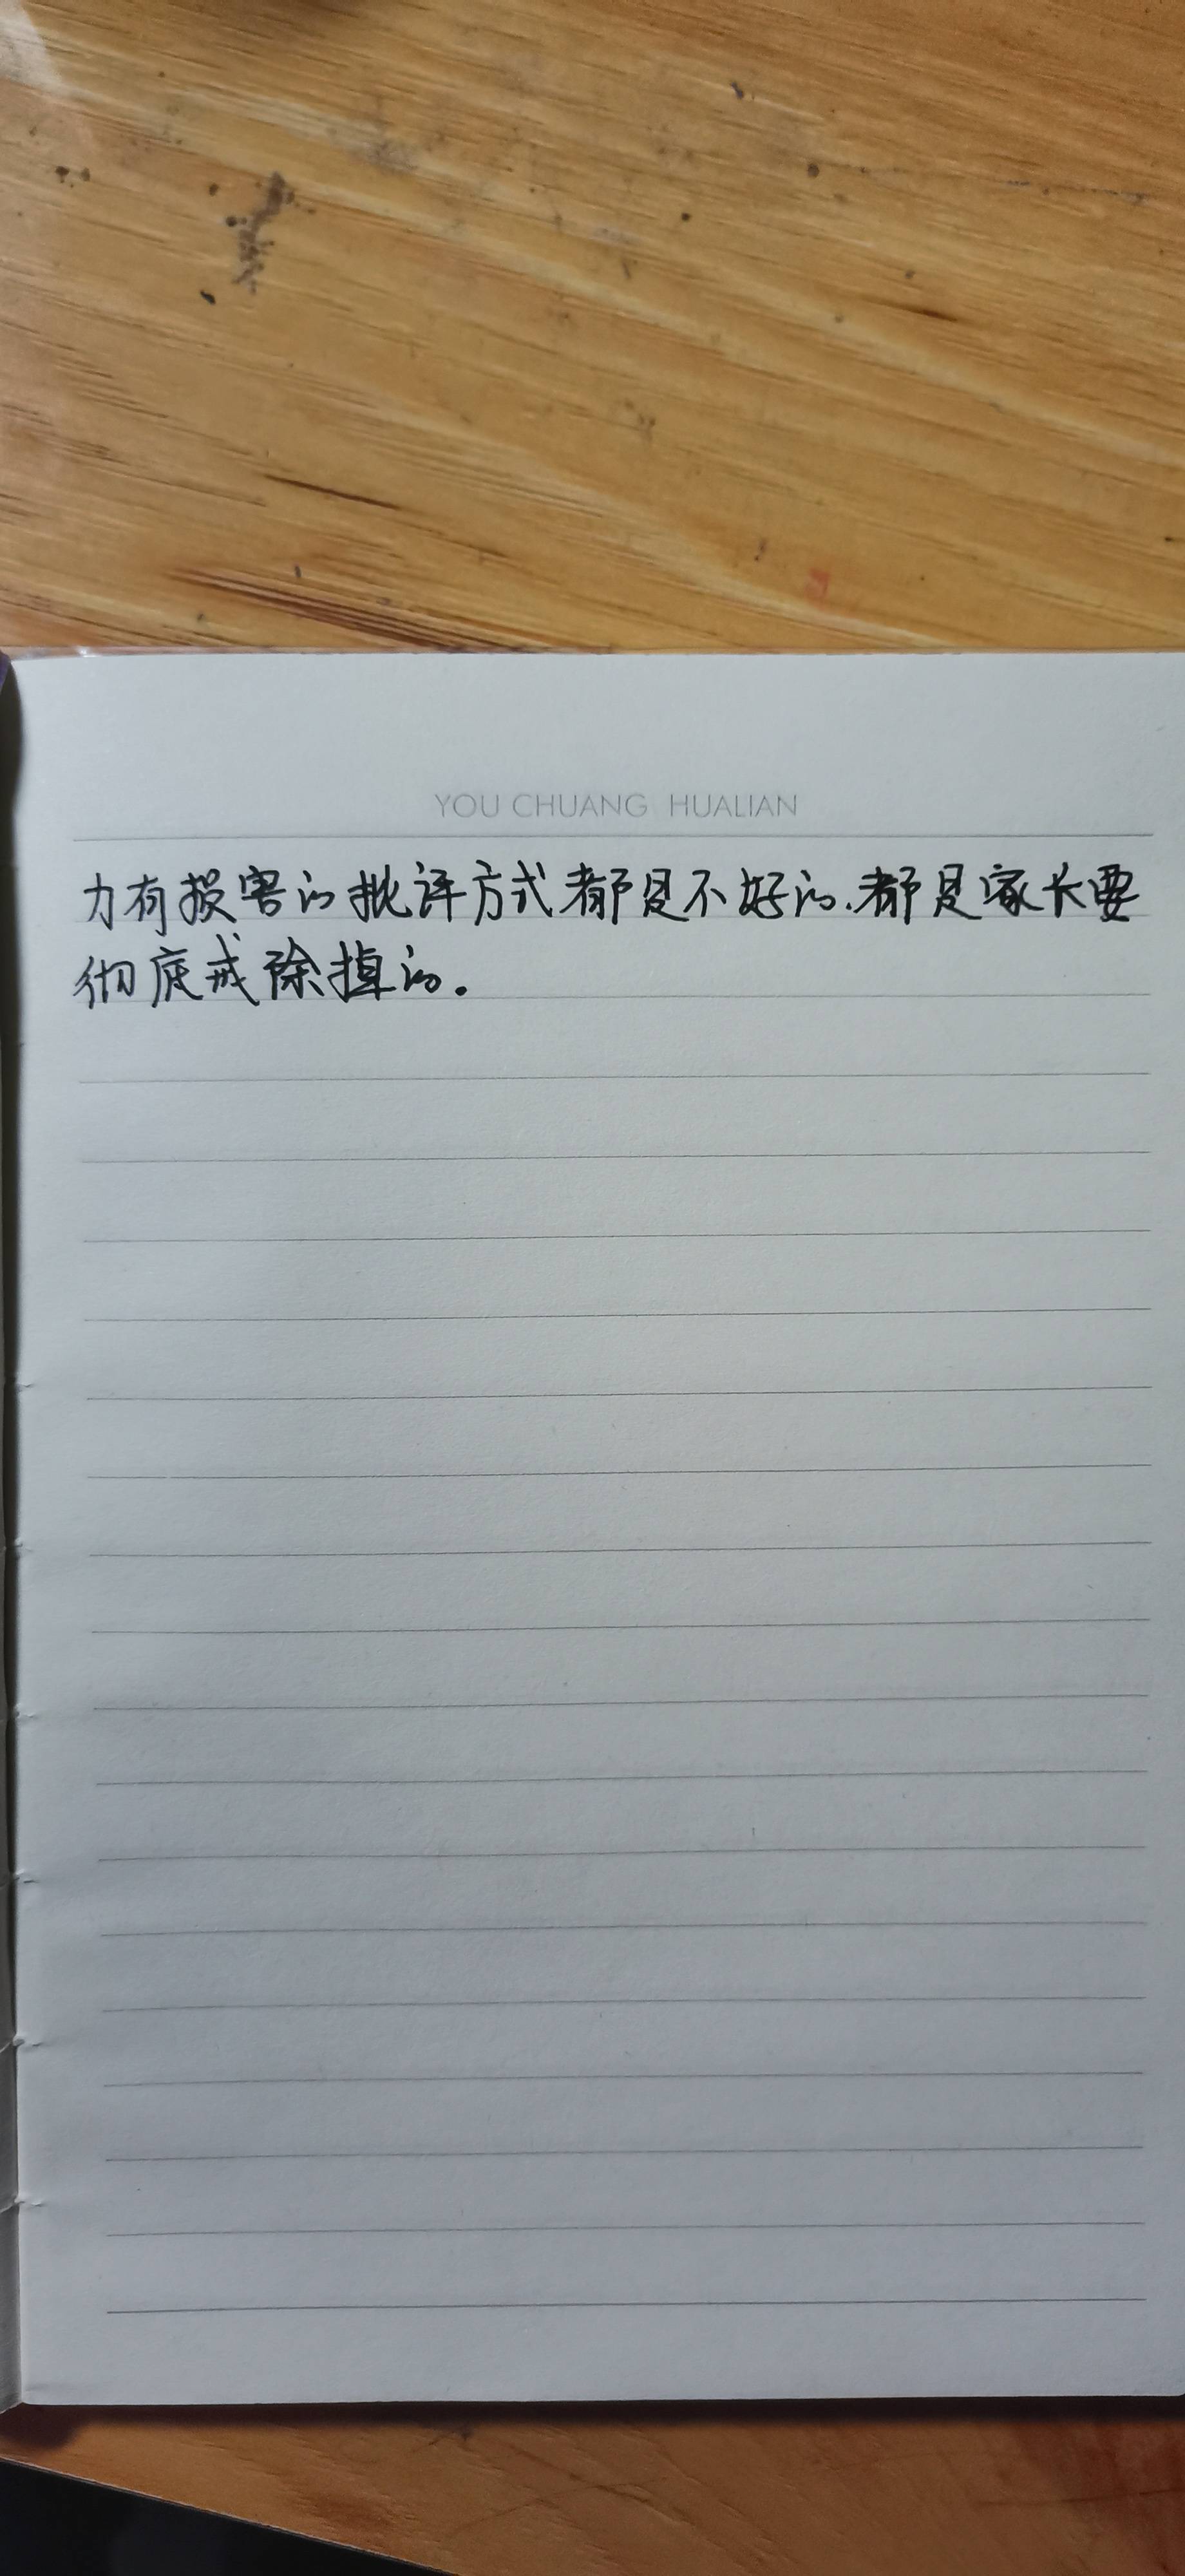 YOU CHUANG HUALIAN
力有损害的批评方式都是不好的.都是家长要
彻底戒除掉的.